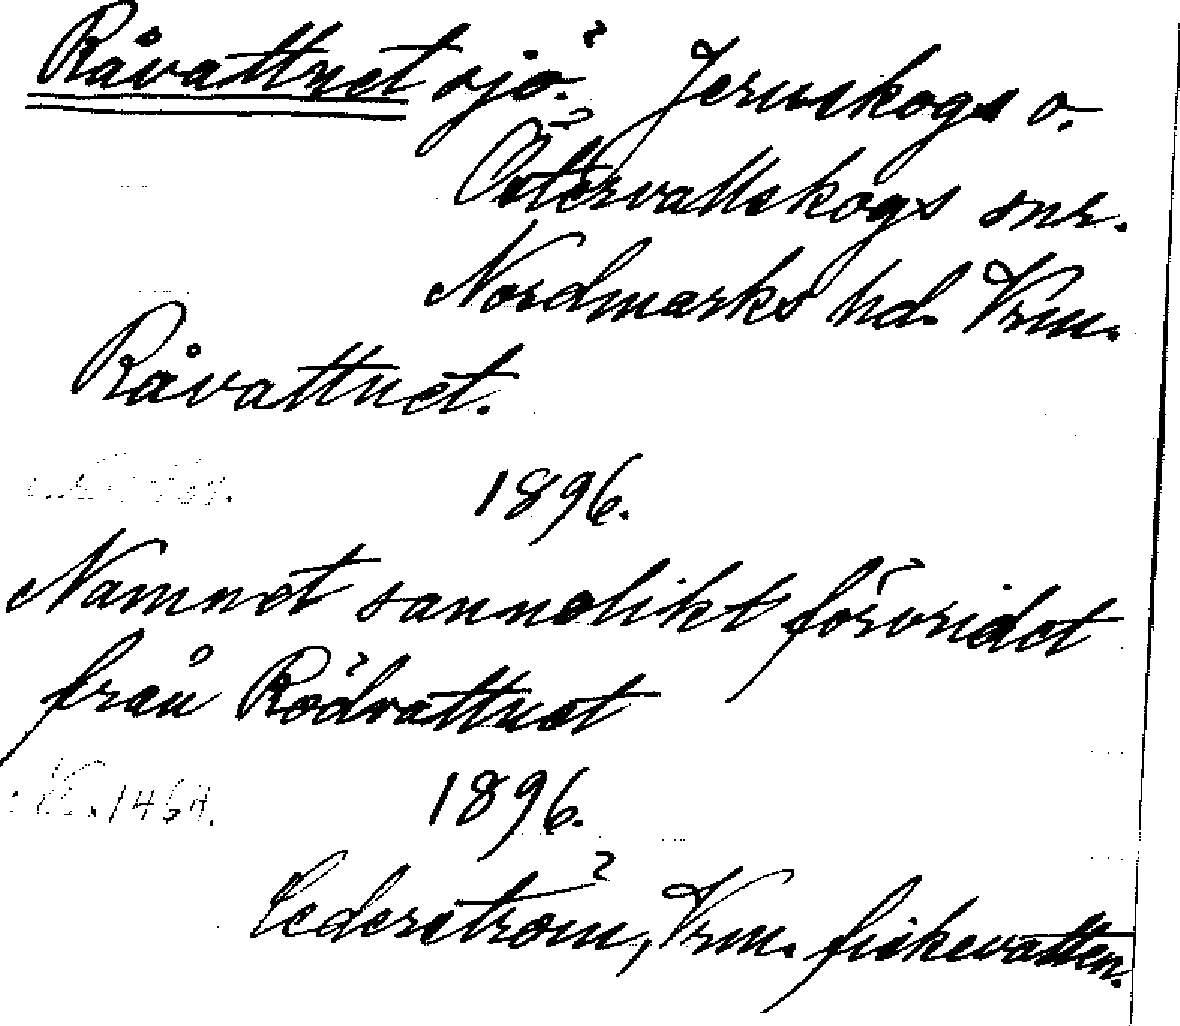 Råvattnet sjö. Jernskogs o.
Östervallskogs snr.
Nordmarks hd. Vrm.
Råvattnet.
1896.
Namnet sannolikt förvridet
från Rödvattnet
1896.
Cederström, Vrm. fiskevatten.